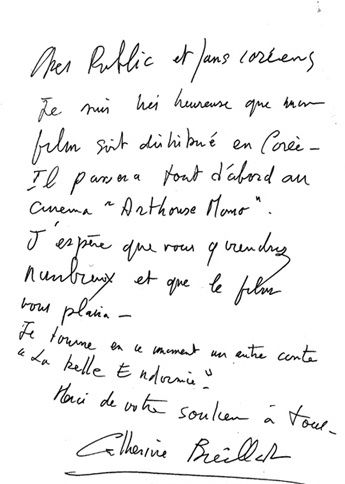 Cher Public et fans coréens
Je suis très heureuse que mon
film soit distribué en Corée -
Il passera tout d'abord au
cinema "Arthouse Momo".
J'espère que vous y viendrez
nombreux et que le film
vous plaira -
Je tourne en ce moment un autre conte
"La belle Endormie" -
Merci de votre soutien à tous -
Catherine Breillat